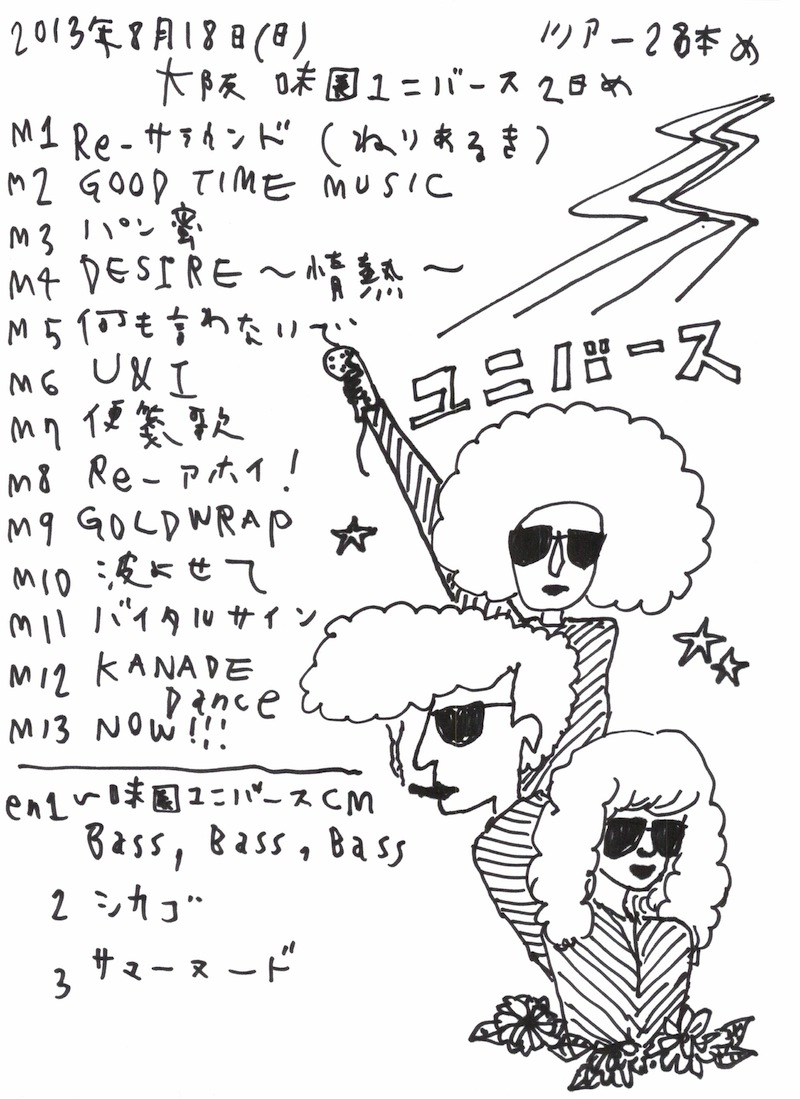 2013年8月18日(日)
ツアー28本め
大阪 味園ユニバース2日め
M1 Re-サラウンド (ねりあるき)
M2 GOOD TIME MUSIC
M3 パン蜜
M4 DESIRE〜情熱〜
M5 何も言わないで
ユニバース
M6 U&I
M7 便箋歌
M8 Re-アホイ!
M9 GOLDWRAP
M10 波にせて
M11 バイタルサイン
M12 KANADE
Dance
M13 NOW!!!
en1〜味園ユニバースCM
Bass, Bass, Bass
2 シカゴ
3 サマーヌード